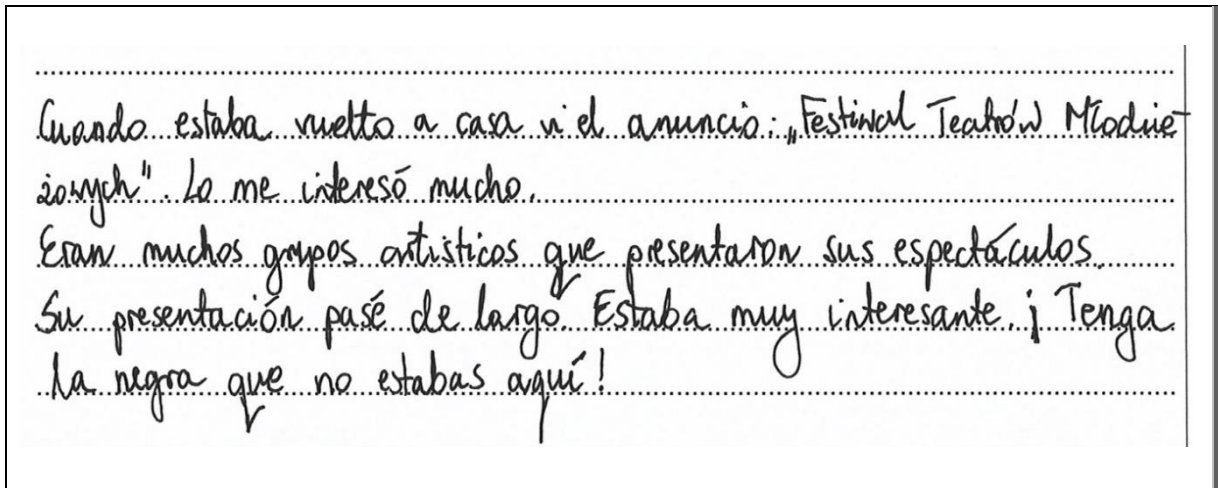 Cuando estaba vuelto a casa vi el anuncio: „Festiwal Teatrów Młodzie-
żowych". Lo me interesó mucho.
Eran muchos grupos artisticos que presentaron sus espectáculos.
Su presentación pasé de largo. Estaba muy interesante. ¡Tenga
la negra que no estabas aquí!